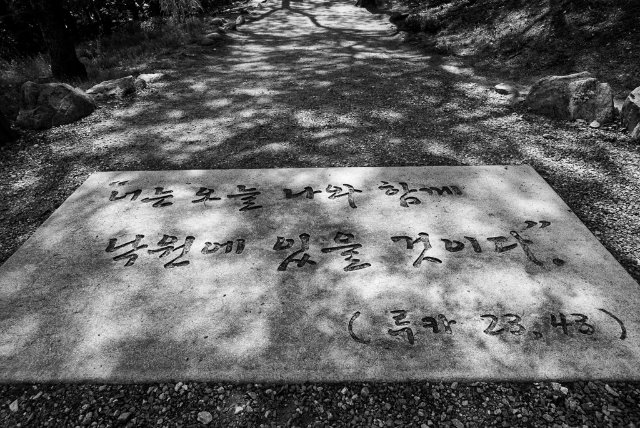 "너는 오늘 나와 함께
낙원에 있을 것이다".
(루카 23, 43)